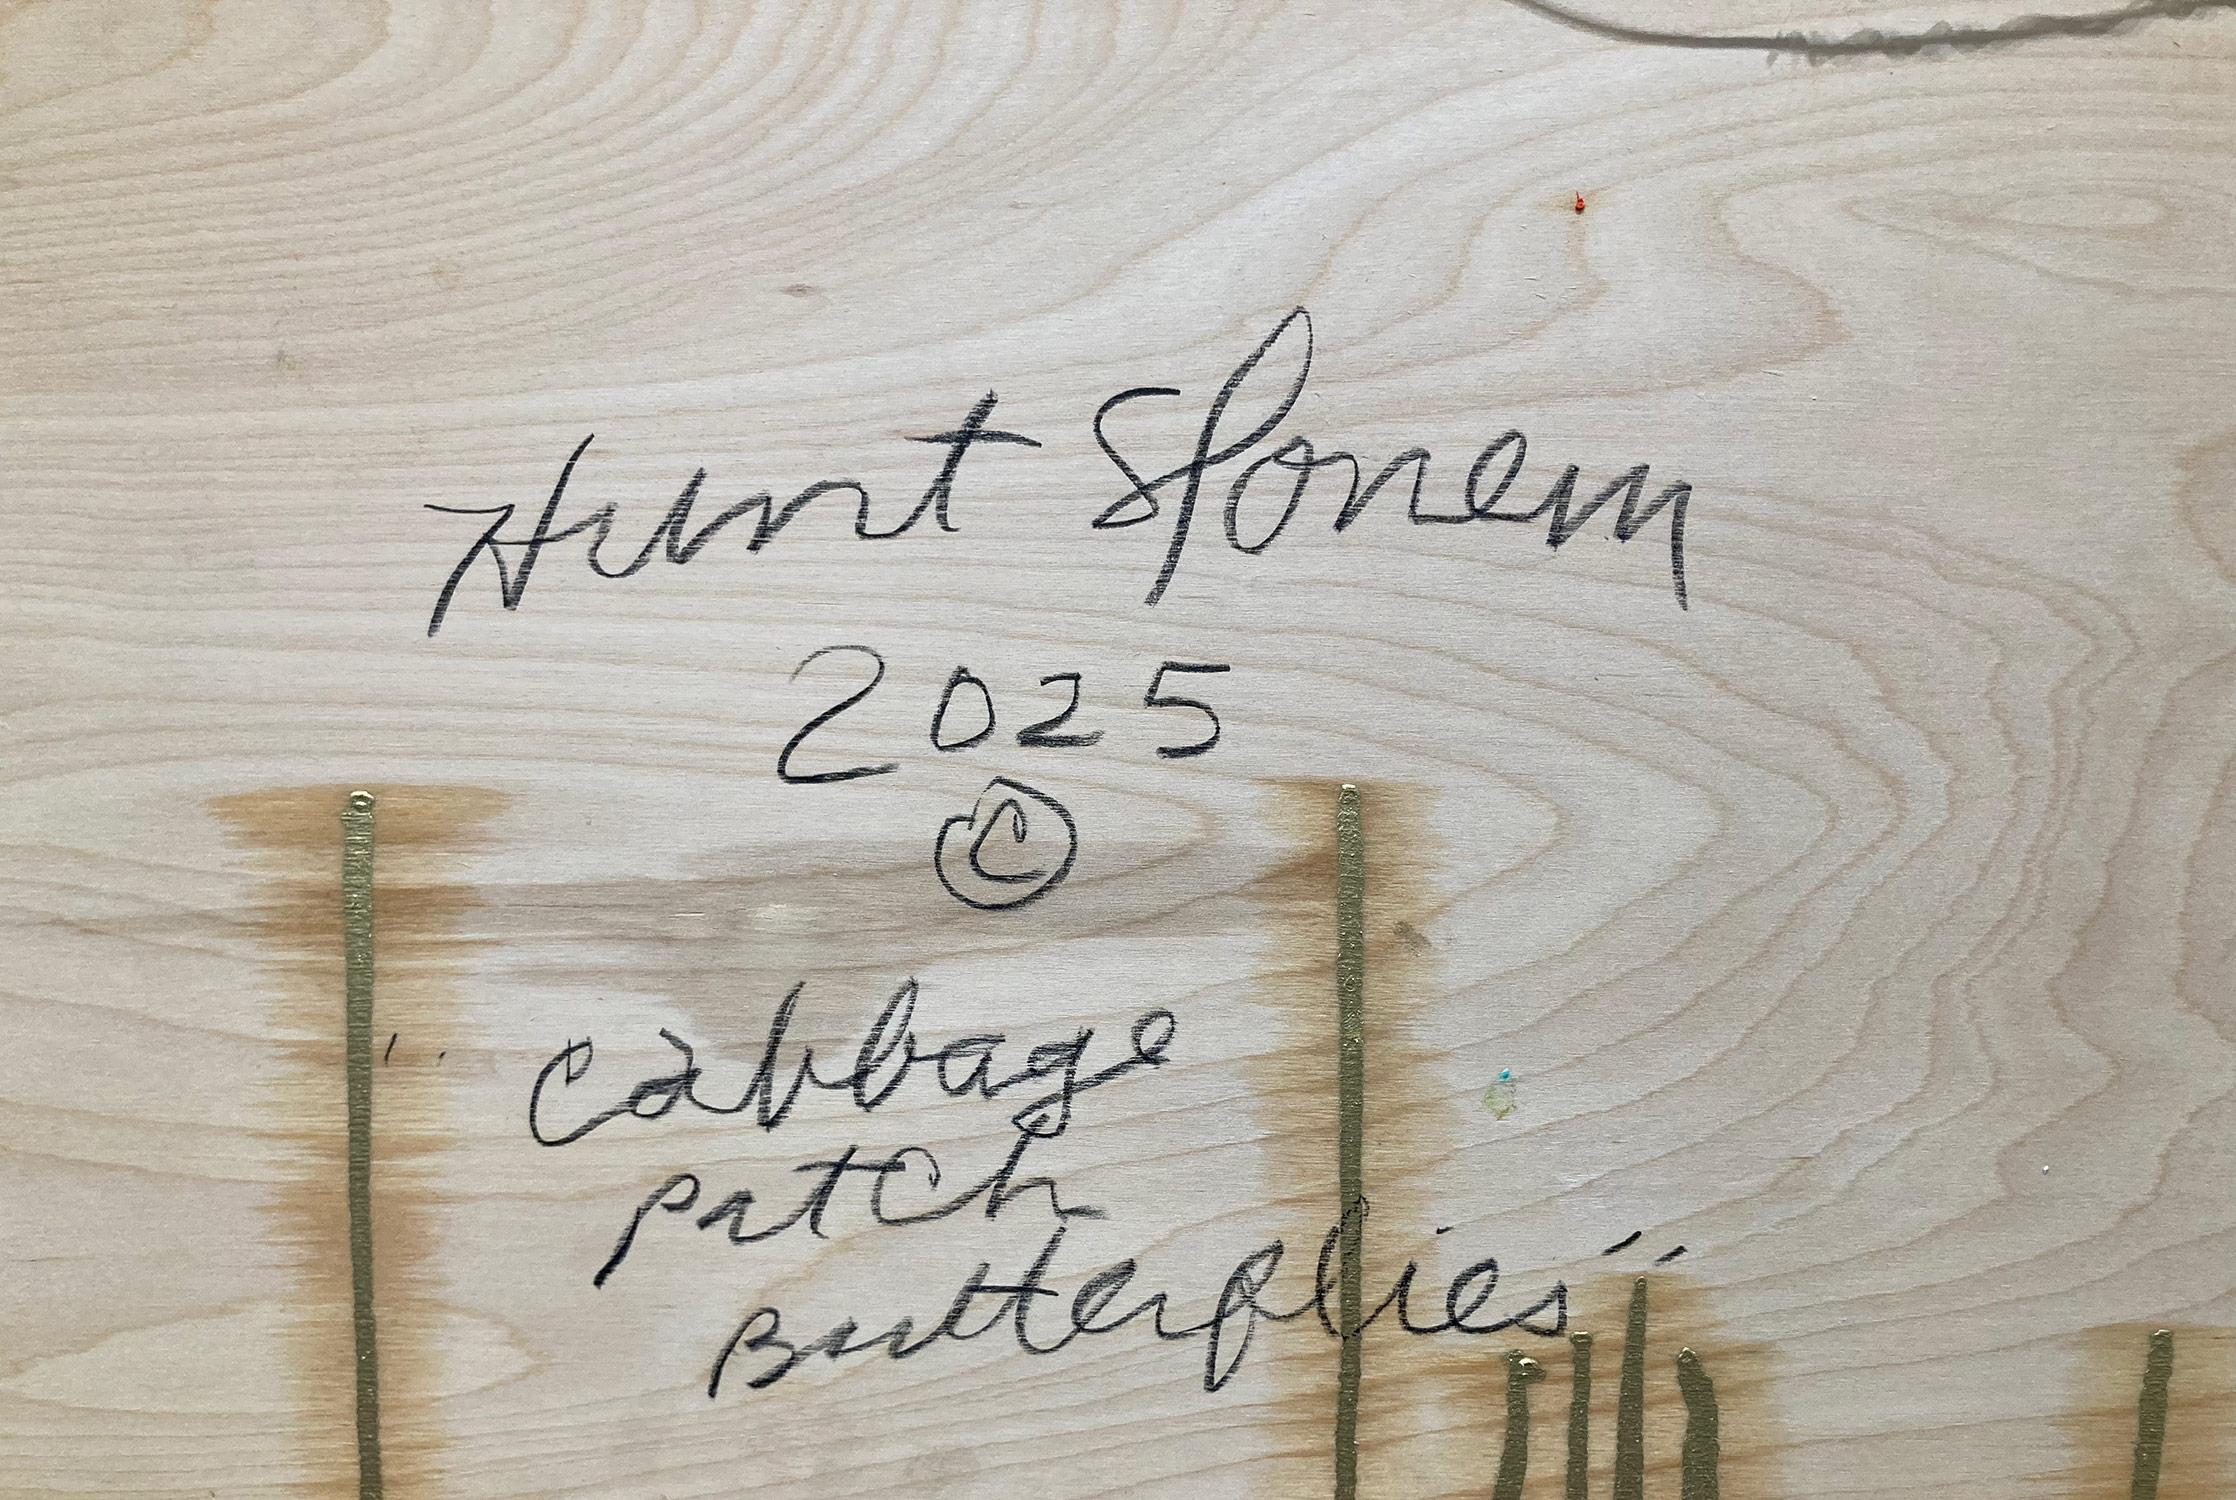 Hunt Slonem
2025
©
"Cabbage
Patch
Butterflies"